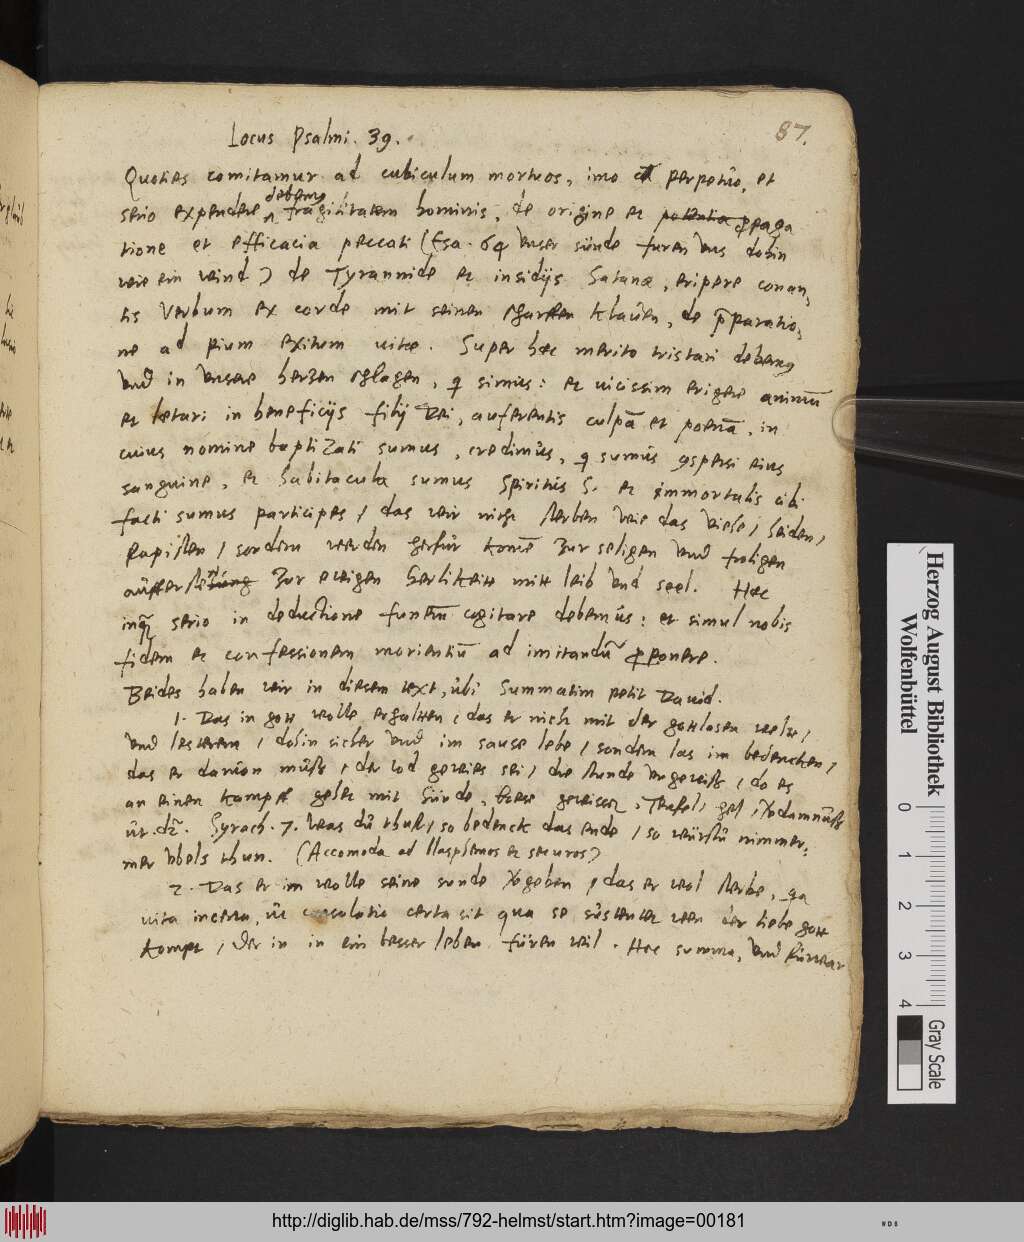 87.
Locus Psalmi. 39.
Quoties comitamur ad cubiculum mortuos, imo perpetuo, et
debemus
serio expendere fragilitatem hominis, de origine et potentia propaga
tione et efficacia peccati (Esa. 64 Unser sünde furen uns dohin
wie ein wind) de Tyrannide et insidijs Satanae, eripere conan,
tis Verbum ex corde mit seinen scharffen klauen, de præparatio,
ne ad pium exitum uitæ. Super hæc merito tristari debemus
Und in unsere hertzen schlagen, simus: et uicissim erigere animum
et letari in beneficijs filij Dei, auferentis culpā et poenā, in
cuius nomine baptizati sumus, credimus, sumus eius
sanguine, et habitacula sumus Spiritus S. et immortalis cibi
facti sumus participes / das wir nicht sterben wie das viehe / heiden,
Papisten / sondern werden herfür komē zur seligen und
zur ewigen herlikeitt mitt leib und seel. Hæc
serio in deductione funerū cogitare debemus: et simul nobis
fidem et confessionem morientiū ad imitandū proponere.
Beides haben wir in diesem text, ubi Summatim petit David.
1. Das in gott wolle erhalten, das er nicht mit der gottlosen welt,
und lesterern, dohin sicher und im sause lebe, sondern las im bedencken,
das er davon müss, der tod gewies sei, die stunde ungewiss, do es
an einen kampf gehet mit Sünde, bose gewissen, Teufel, hel,
Syrach. 7. Was du thust, so bedenck das ende, so würstu nimmer,
mer ubels thun. (Accomoda ad blasphemos et securos)
2. Das er im wolle seine sunde vergeben, das er wol sterbe, qa
vita incerta, consolatio certa sit qua se sustentet wen der liebe gott
kompt, der in in ein besser leben füren wil. Hæc summa, und fürwar
Herzog August Bibliothek
Wolfenbüttel
0 1 2 3 4
Gray Scale
http://diglib.hab.de/mss/792-helmst/start.htm?image=00181